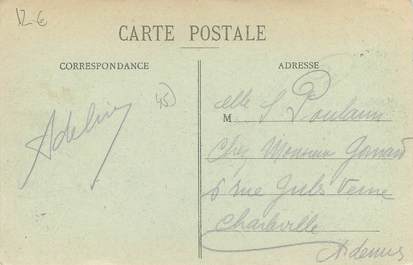 12-€
CARTE POSTALE
CORRESPONDANCE
ADRESSE
45
Adeline
Melle S Poulain
Chez Monsieur
6 rue Jules Verne
Charleville
Ardennes